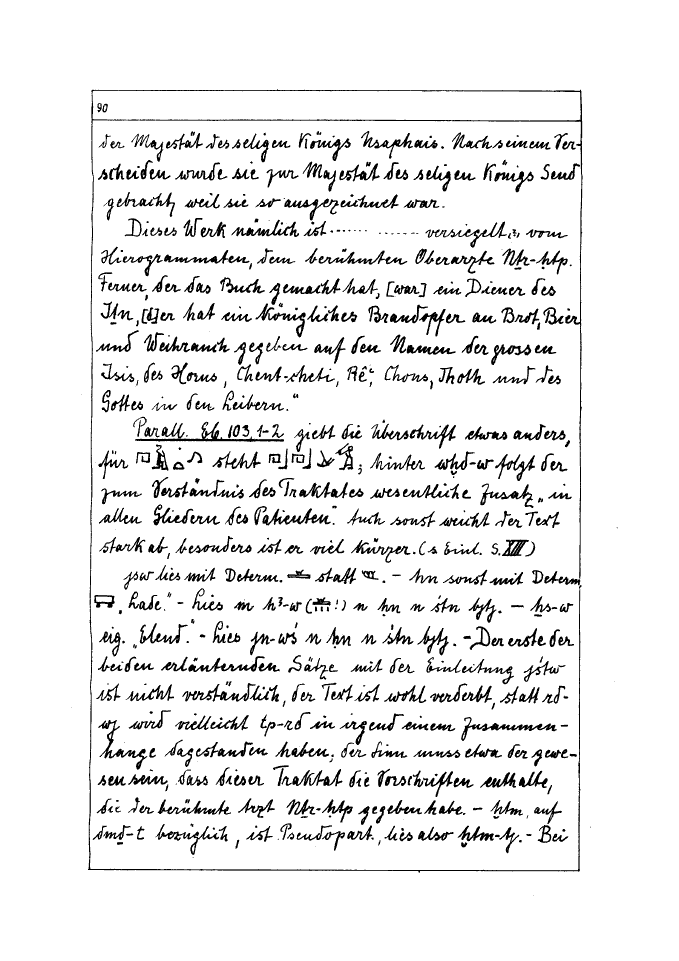 90
der Majestät des seligen Königs Usaphais. Nach seinem Ver-
scheiden wurde sie zur Majestät des seligen Königs Send
gebracht, weil sie so ausgezeichnet war.
Dieses Werk nämlich ist ....... ....... versiegelt, vom
Hierogrammaten, dem berühmten Oberarzte Nṯr-ḥtp.
Ferner, der das Buch gemacht hat, [war] ein Diener des
Itn, [d]er hat ein königliches Brandopfer an Brot, Bier
und Weihrauch gegeben auf den Namen der grossen
Isis, des Horus, Chent-cheti, Rêʿ, Chons, Thoth und des
Gottes in den Leibern."
Parall. Eb. 103, 1-2 giebt die Überschrift etwas anders,
für steht ; hinter wḫd-w folgt der
zum Verständnis des Traktates wesentliche Zusatz „in
allen Gliedern des Patienten". Auch sonst weicht der Text
stark ab, besonders ist er viel kürzer. (s Einl. S. XIII)
jsw lies mit Determ. statt . - hn sonst mit Determ.
„Lade." - Lies m h³-w (!) n ḥn n śtn bjtj. - ḫs-w
eig. „Elend." - Lies jn-wś n ḥn n śtn bjtj. - Der erste der
beiden erläuternden Sätze mit der Einleitung jśtw
ist nicht verständlich, der Text ist wohl verderbt, statt rd-
wj wird vielleicht tp-rd in irgend einem Zusammen-
hange dagestanden haben; der Sinn muss etwa der gewe-
sen sein, dass dieser Traktat die Vorschriften enthalte,
die der berühmte Arzt Nṯr-ḥtp gegeben habe. - ḫtm, auf
dmḏ-t bezüglich, ist Pseudopart., lies also ḫtm-tj. - Bei